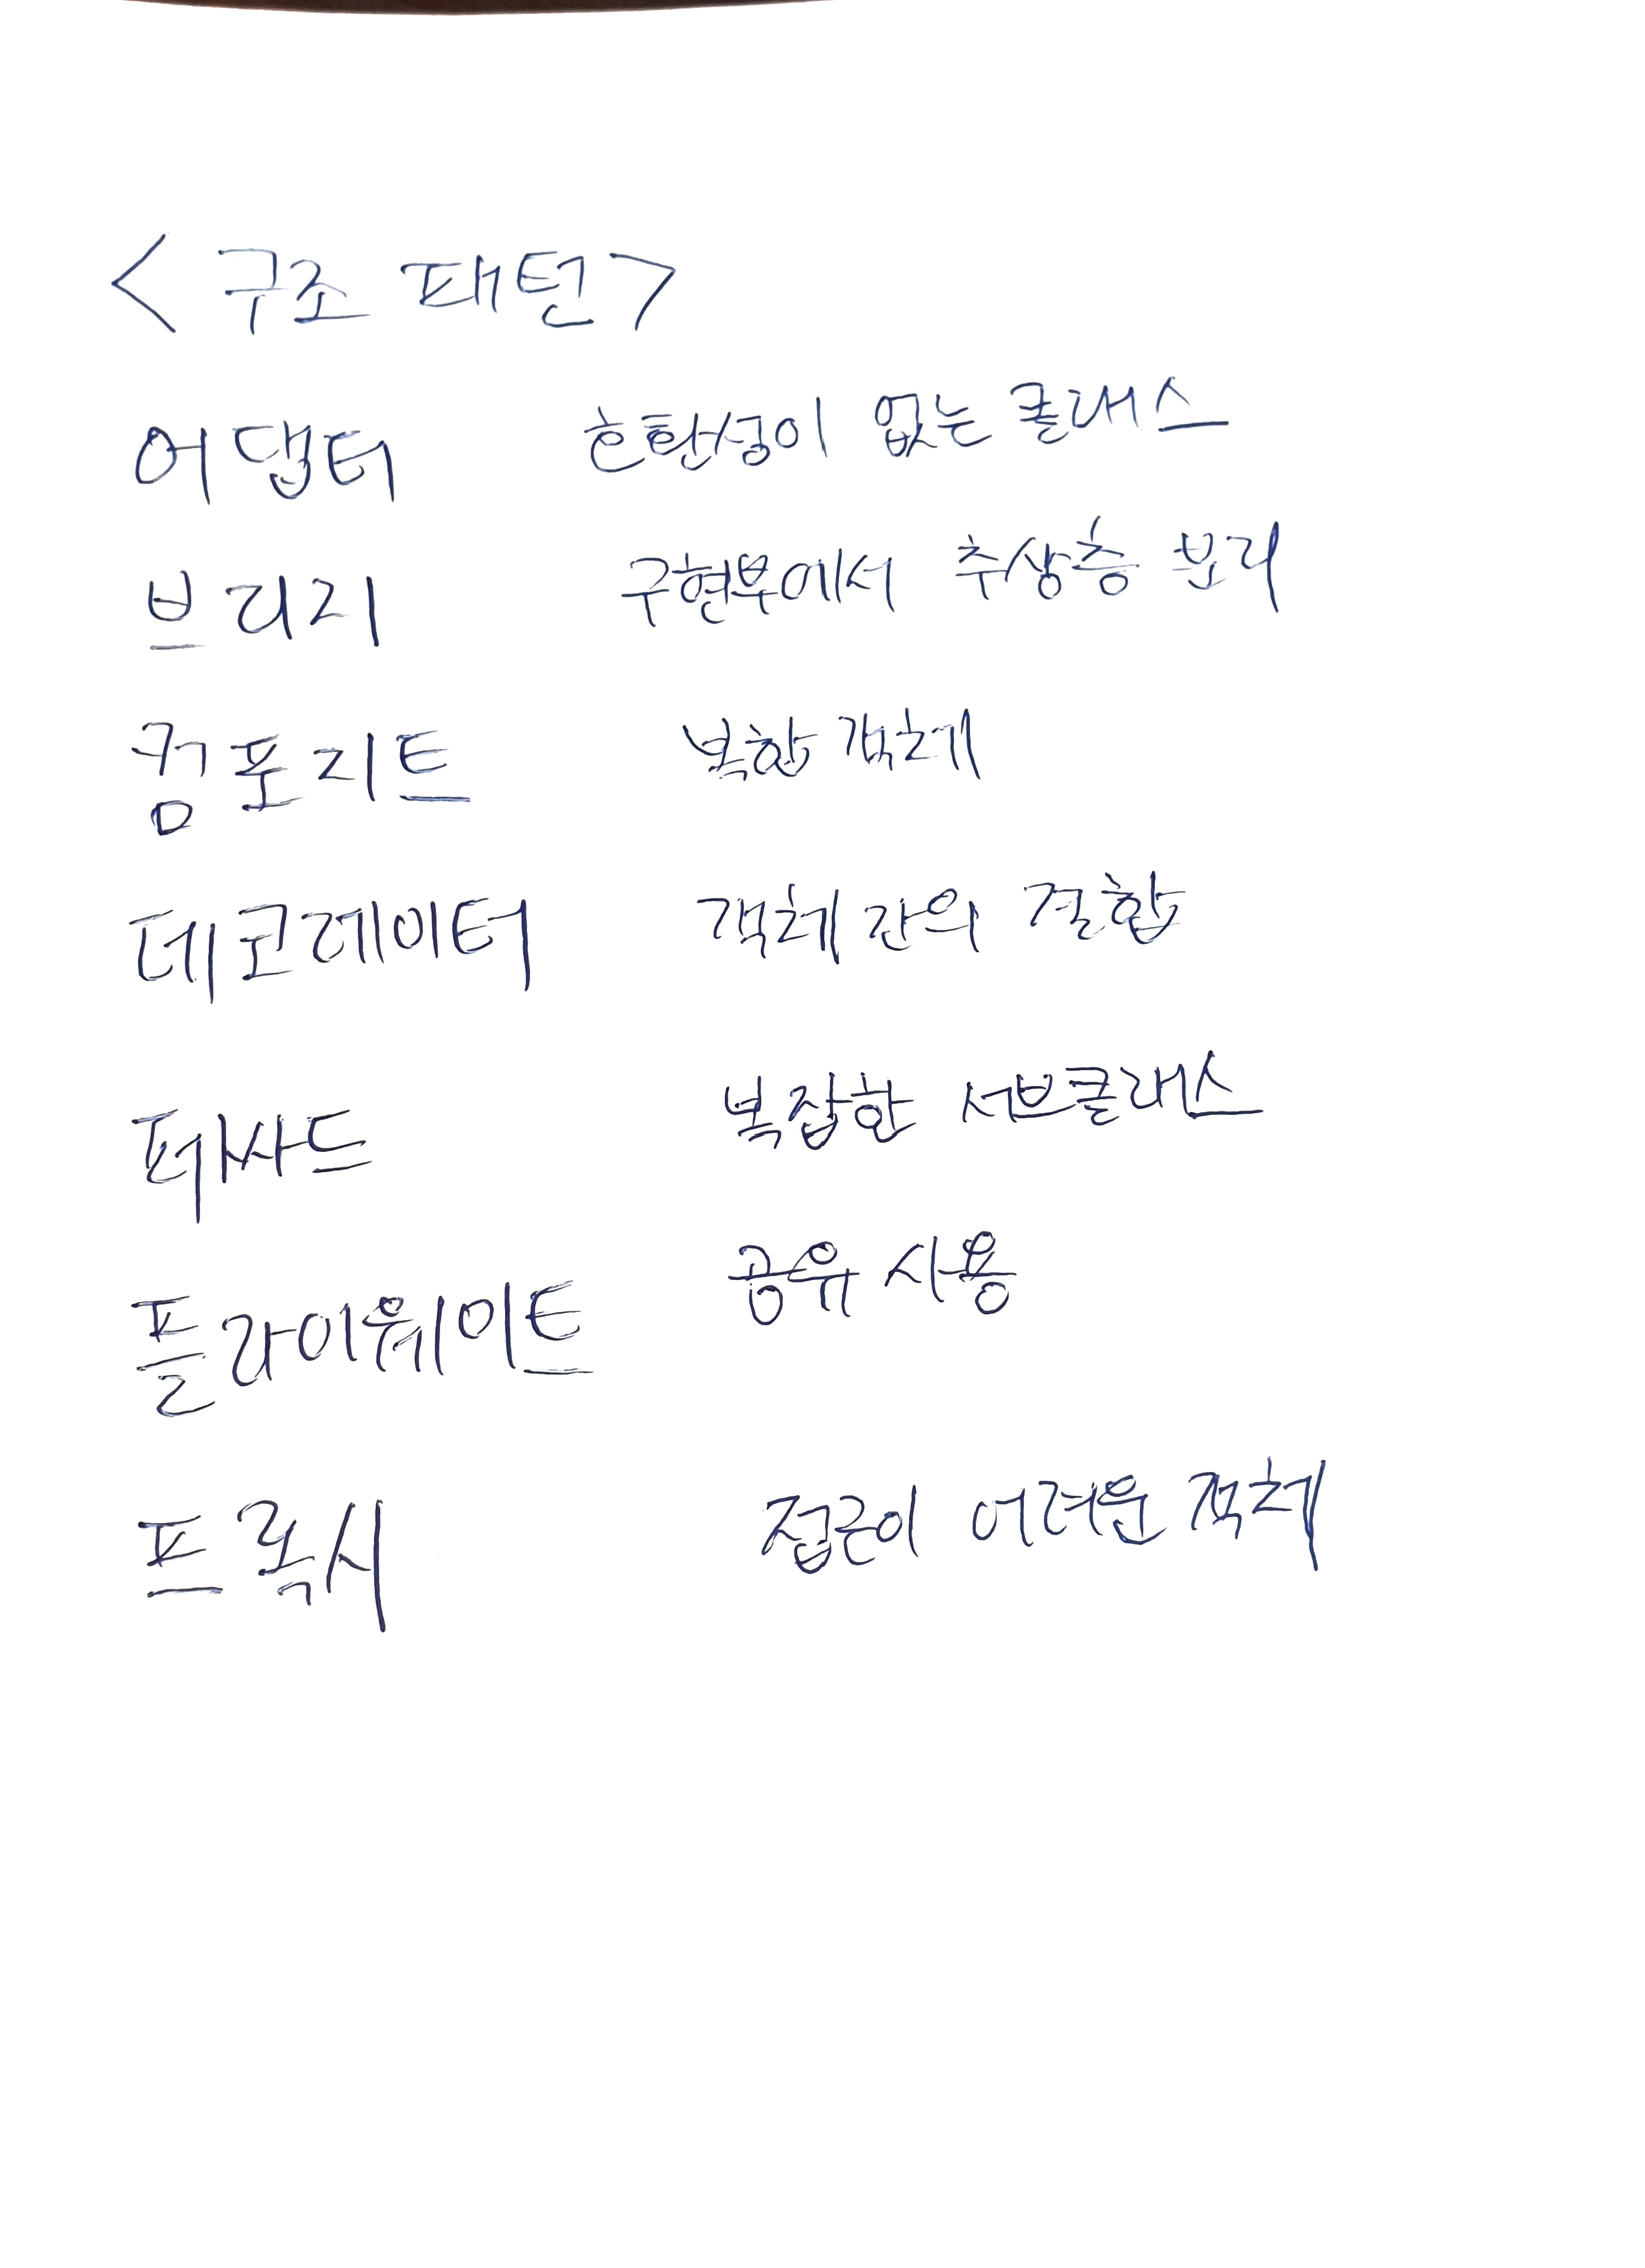 <구조 패턴>
어댑터 호환성이 없는 클래스
브리지 구현부에서 추상층 분리
컴포지트 복합 객체
데코레이터 객체 간의 결합
퍼싸드 복잡한 서브클래스
플라이웨이트 공유 사용
프록시 접근이 어려운 객체